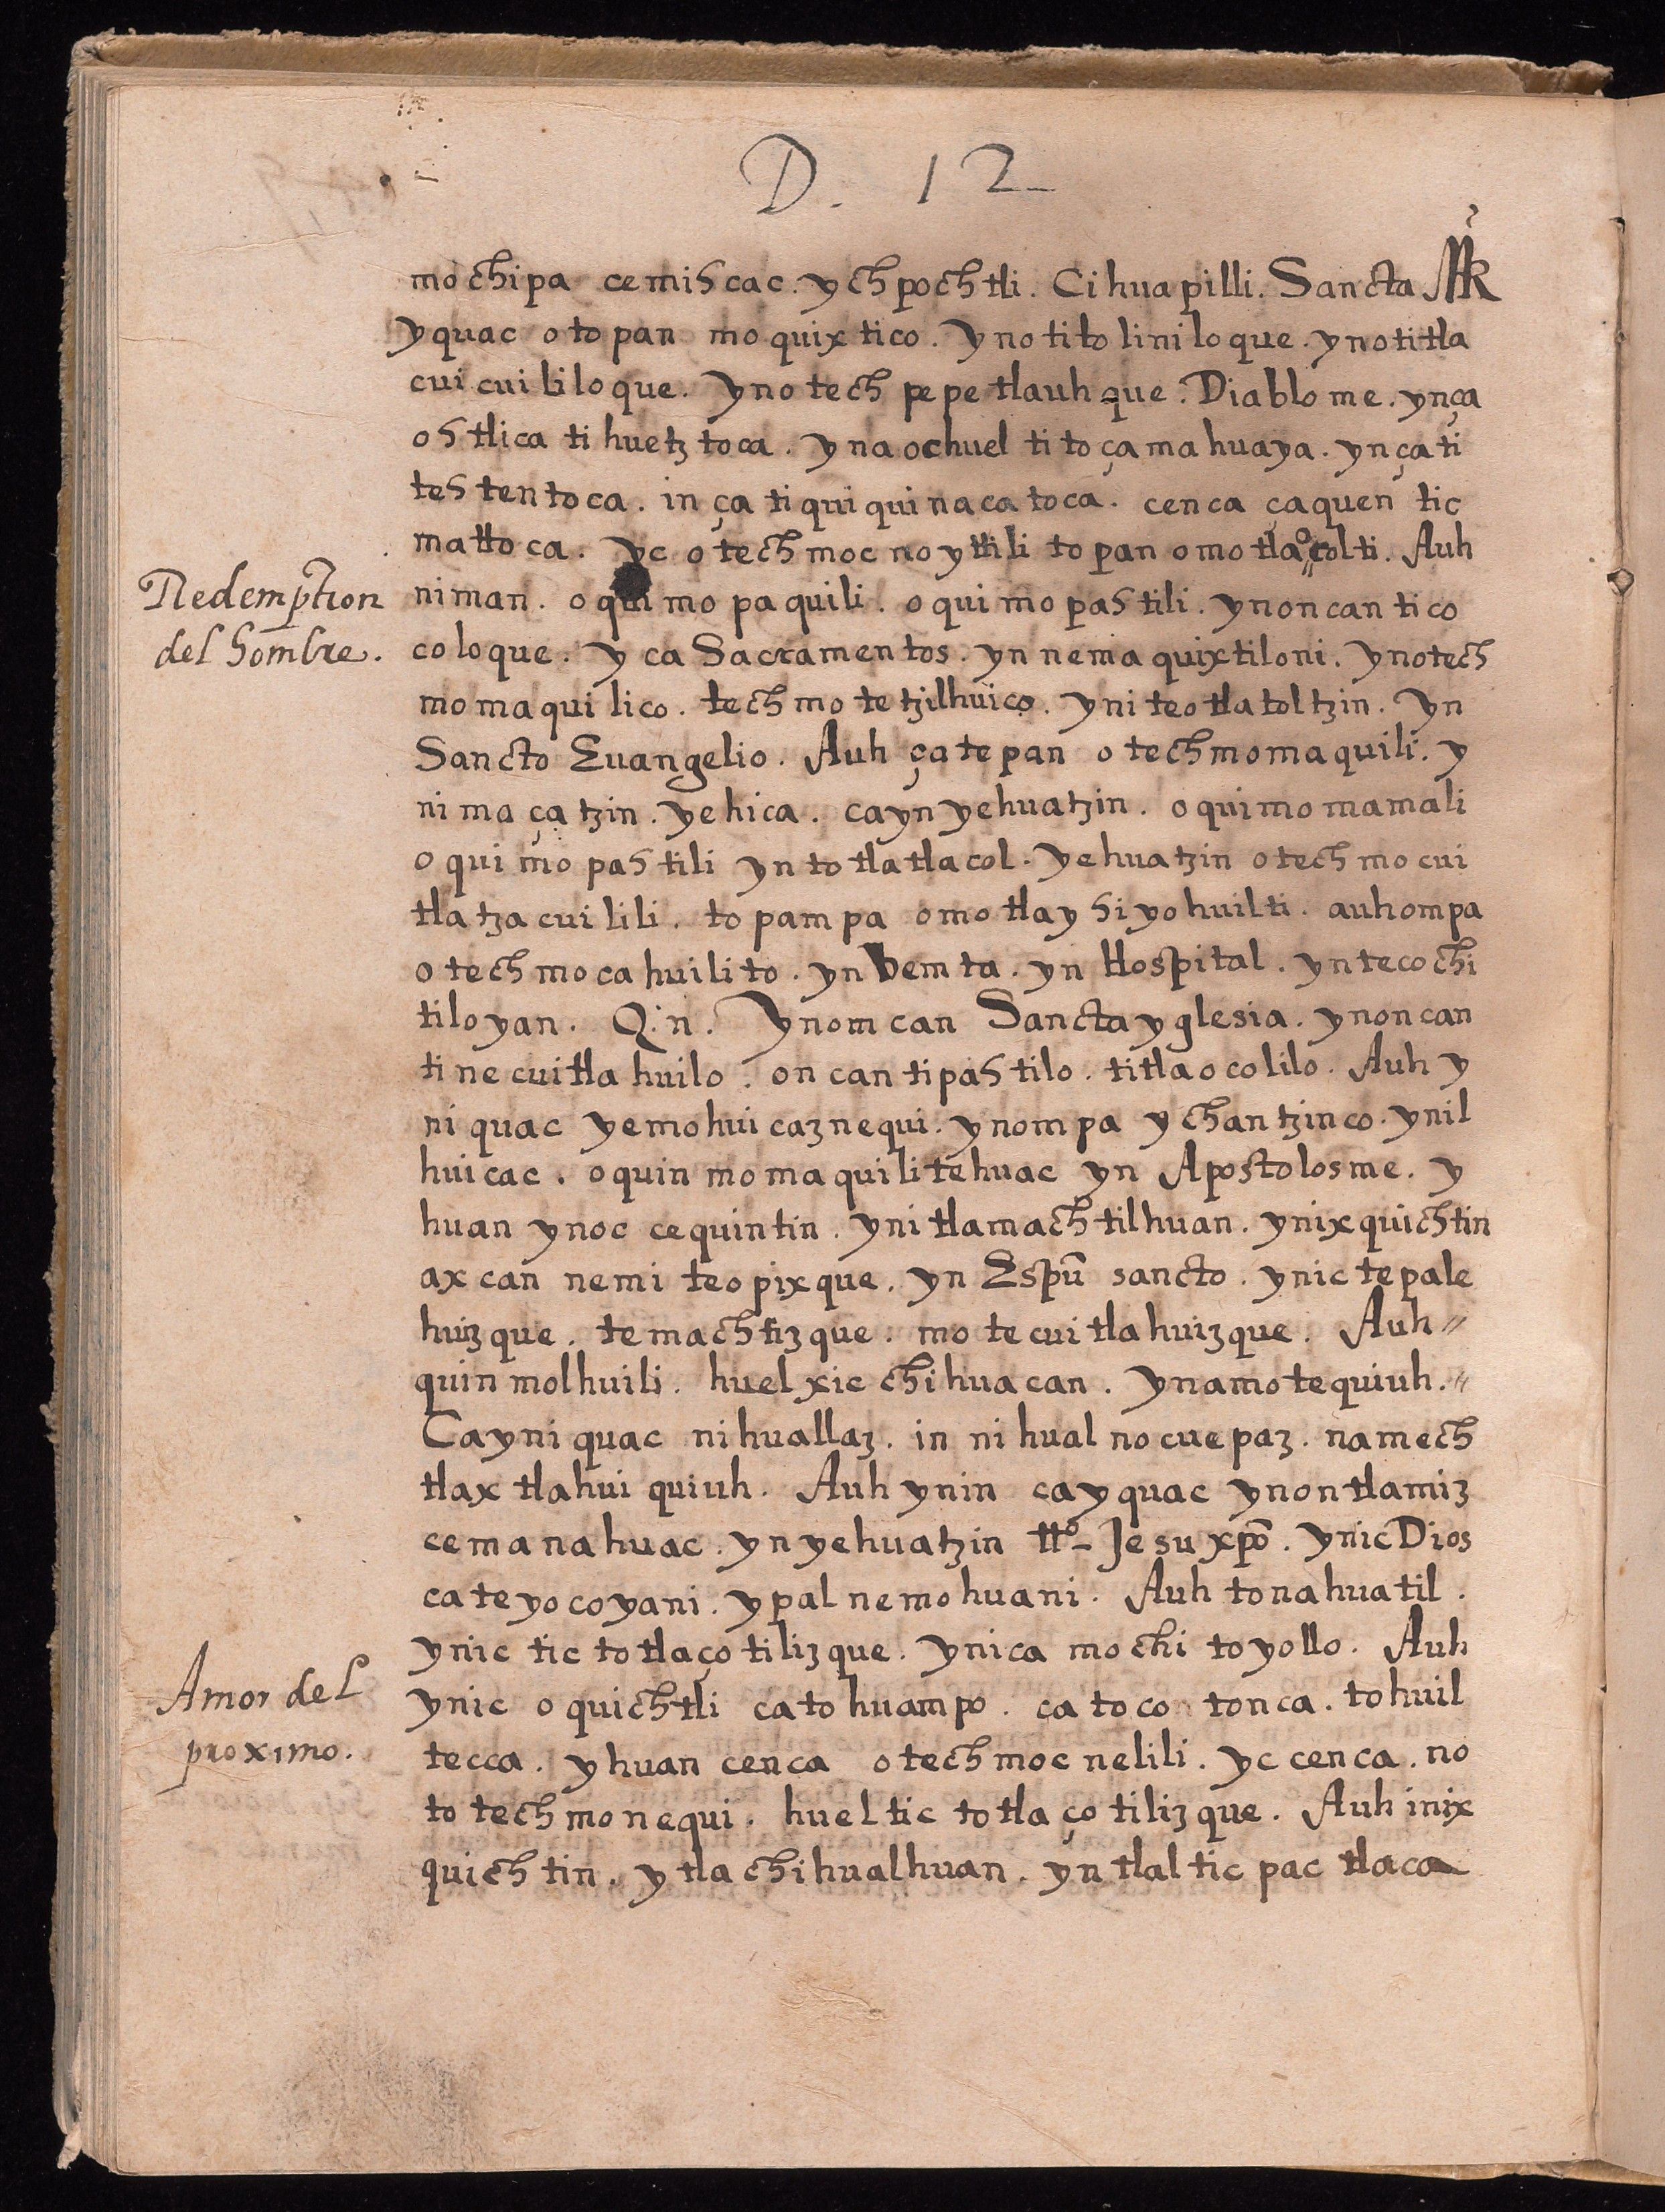 D. 12
mochipa cemihcac. ychpochtli. Cihuapilli. Sancta Mª
yquac otopan moquixtico. ynotitoliniloque. ynotitla
cuicuililoque. ynotech pepetlauhque. Diablome. ynça
ohtlica tihuetztoca. ynaochuel titoçamahuaya. ynçati
tehtentoca. inça tiquiquinacatoca. cenca çaquen tic
mattoca. yc otechmocnoyttili topan omotlaºcolti. Auh
Redemption
del hombre.
niman. oquimopaquili. oquimopahtili. ynoncan titico
coloque. yca Sacramentos. yn nemaquixtiloni. ynotech
momaquilico. techmotetzilhuico. yniteotlatoltzin. Yn
Sancto Euangelio. Auh çatepan otechmomaquili. y
nimaçatzin. yehica. cayn yehuatzin. oquimomamali
oquimopahtili yntotlatlacol. yehuatzin otechmocui
tlatzacuilili. topampa omotlayhiyohuilti. auhompa
otechmocahuilito. yn Vemta. yn Hospital. yntecochi
tiloyan. Q.n. Ynomcan Sancta yglesia. ynoncan
tinecuitlahuilo. oncan tipahtilo. titlaocolilo. Auh y
niquac yemohuicaznequi. ynompa ychantzinco. ynil
huicac. oquinmomaquilitehuac yn Apostolosme. y
huan ynoc cequintin. ynitlamachtilhuan. ynixquichtin
axcan nemi teopixque. yn Espũ sancto. ynic tepale
huizque. temachtizque. motecuitlahuizque. Auh〃
quinmolhuili. huel xic chihuacan. ynamotequiuh.〃
Cayniquac nihuallaz. in nihualnocuepaz. namech
tlaxtlahuiquiuh. Auh ynin cayquac ynontlamiz
cemanahuac. ynyehuatzin ttº- Jesu xpõ. ynic Dios
cateyocoyani. ypalnemohuani. Auh tonahuatil.
ynic tictotlaçotilizque. ynica mochi toyollo. Auh
Amor del
proximo.
ynic oquichtli catohuampo. catoco tonca. tohuil
tecca. yhuan cenca otechmocnelili. yc cenca. no
totechmonequi. hueltic totlaçotilizque. Auh inix
quichtin. ytlachihualhuan. yntlalticpac tlaca